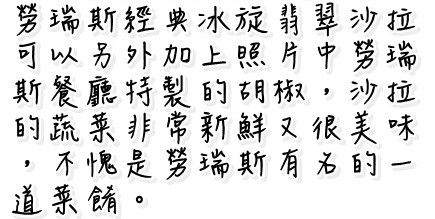 勞瑞斯經典冰旋翡翠沙拉
可以另外加上照片中勞瑞
斯餐廳特製的胡椒，沙拉
的蔬菜非常新鮮又很美味
，不愧是勞瑞斯有名的一
道菜餚。